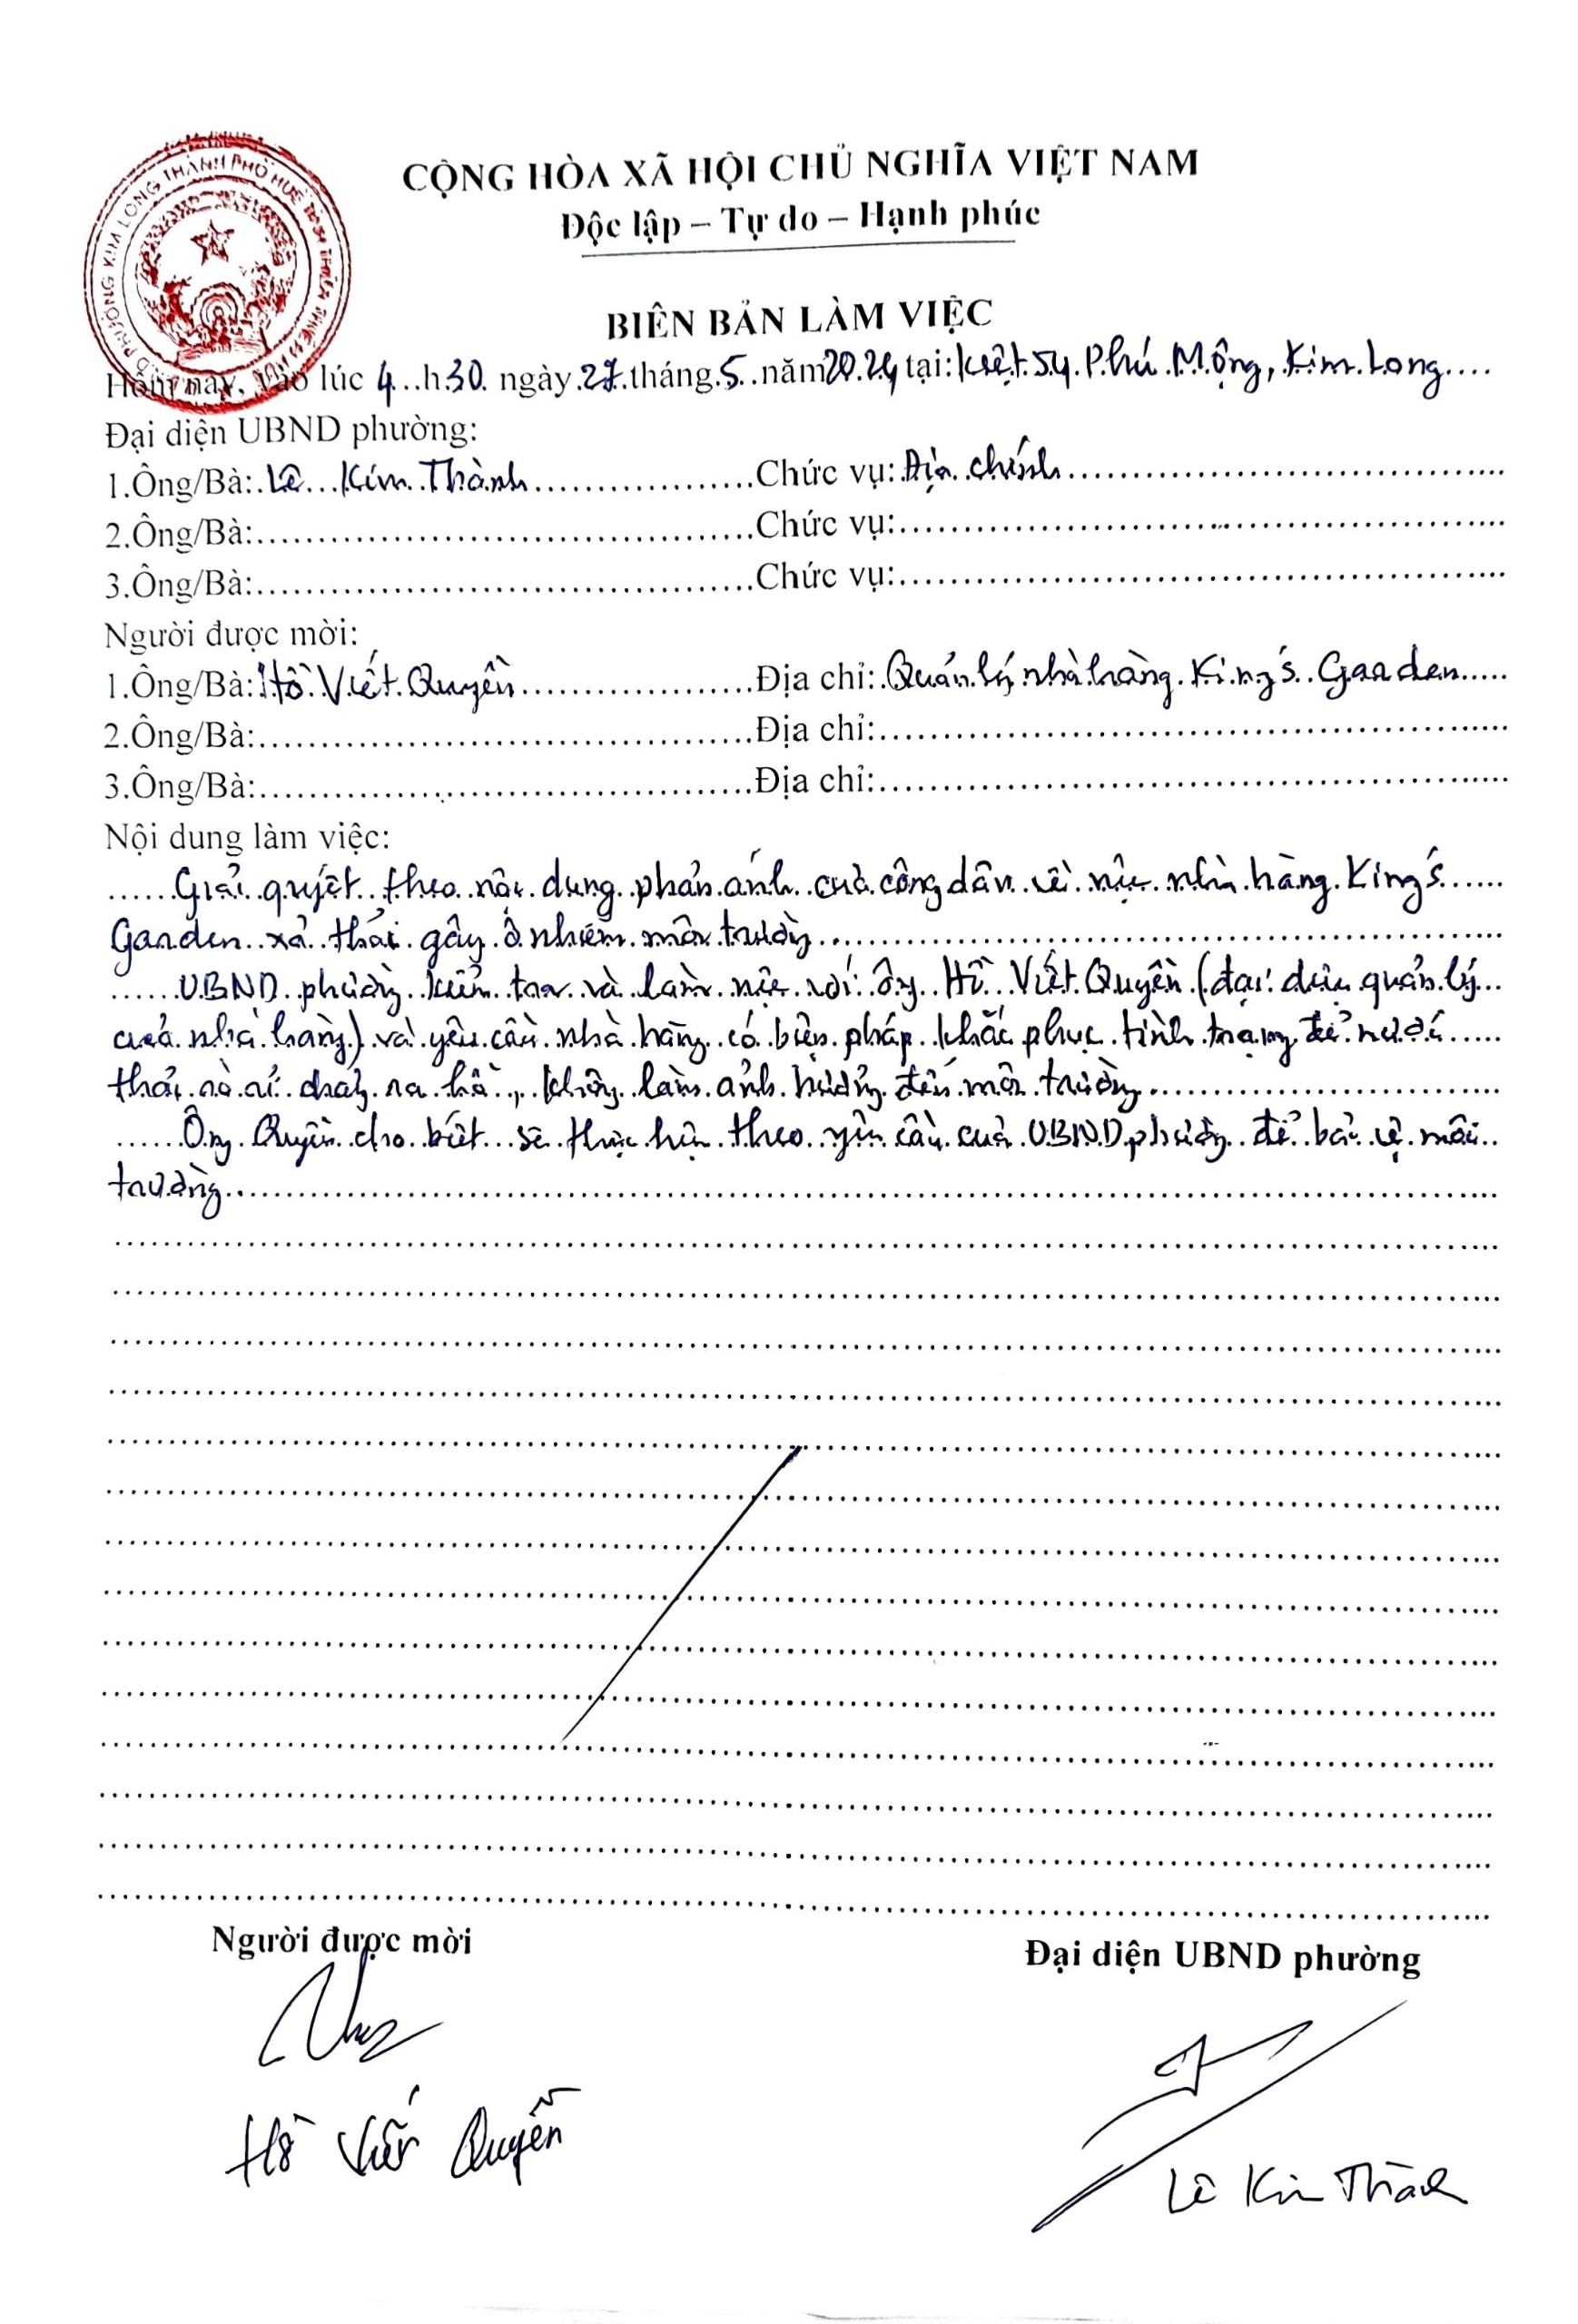 CỘNG HÒA XÃ HỘI CHỦ NGHĨA VIỆT NAM
Độc lập – Tự do – Hạnh phúc
BIÊN BẢN LÀM VIỆC
Hôm nay, vào lúc 4 h 30 ngày 27 tháng 5 năm 2024 tại: Kiệt 54 Phú Mộng, Kim Long
Đại diện UBND phường:
1.Ông/Bà: Lê Kim Thành Chức vụ: Địa chính
2.Ông/Bà: Chức vụ:
3.Ông/Bà: Chức vụ:
Người được mời:
1.Ông/Bà: Hồ Viết Quyền Địa chỉ: Quản lý nhà hàng King's Garden
2.Ông/Bà: Địa chỉ:
3.Ông/Bà: Địa chỉ:
Nội dung làm việc:
Giải quyết theo nội dung phản ánh của công dân về việc nhà hàng King's
Garden xả thải gây ô nhiễm môi trường
UBND phường kiểm tra và làm việc với ông Hồ Viết Quyền (đại diện quản lý
của nhà hàng) và yêu cầu nhà hàng có biện pháp khắc phục tình trạng để nước
thải rò rỉ chảy ra hồ, không làm ảnh hưởng đến môi trường
Ông Quyền cho biết sẽ thực hiện theo yêu cầu của UBND phường để bảo vệ môi
trường
Người được mời Đại diện UBND phường
Hồ Viết Quyền Lê Kim Thành